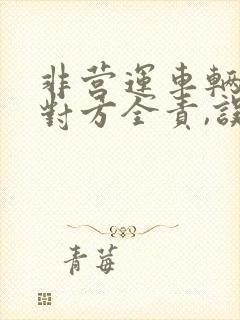 非营運車輛
對方全責,誤
青莓